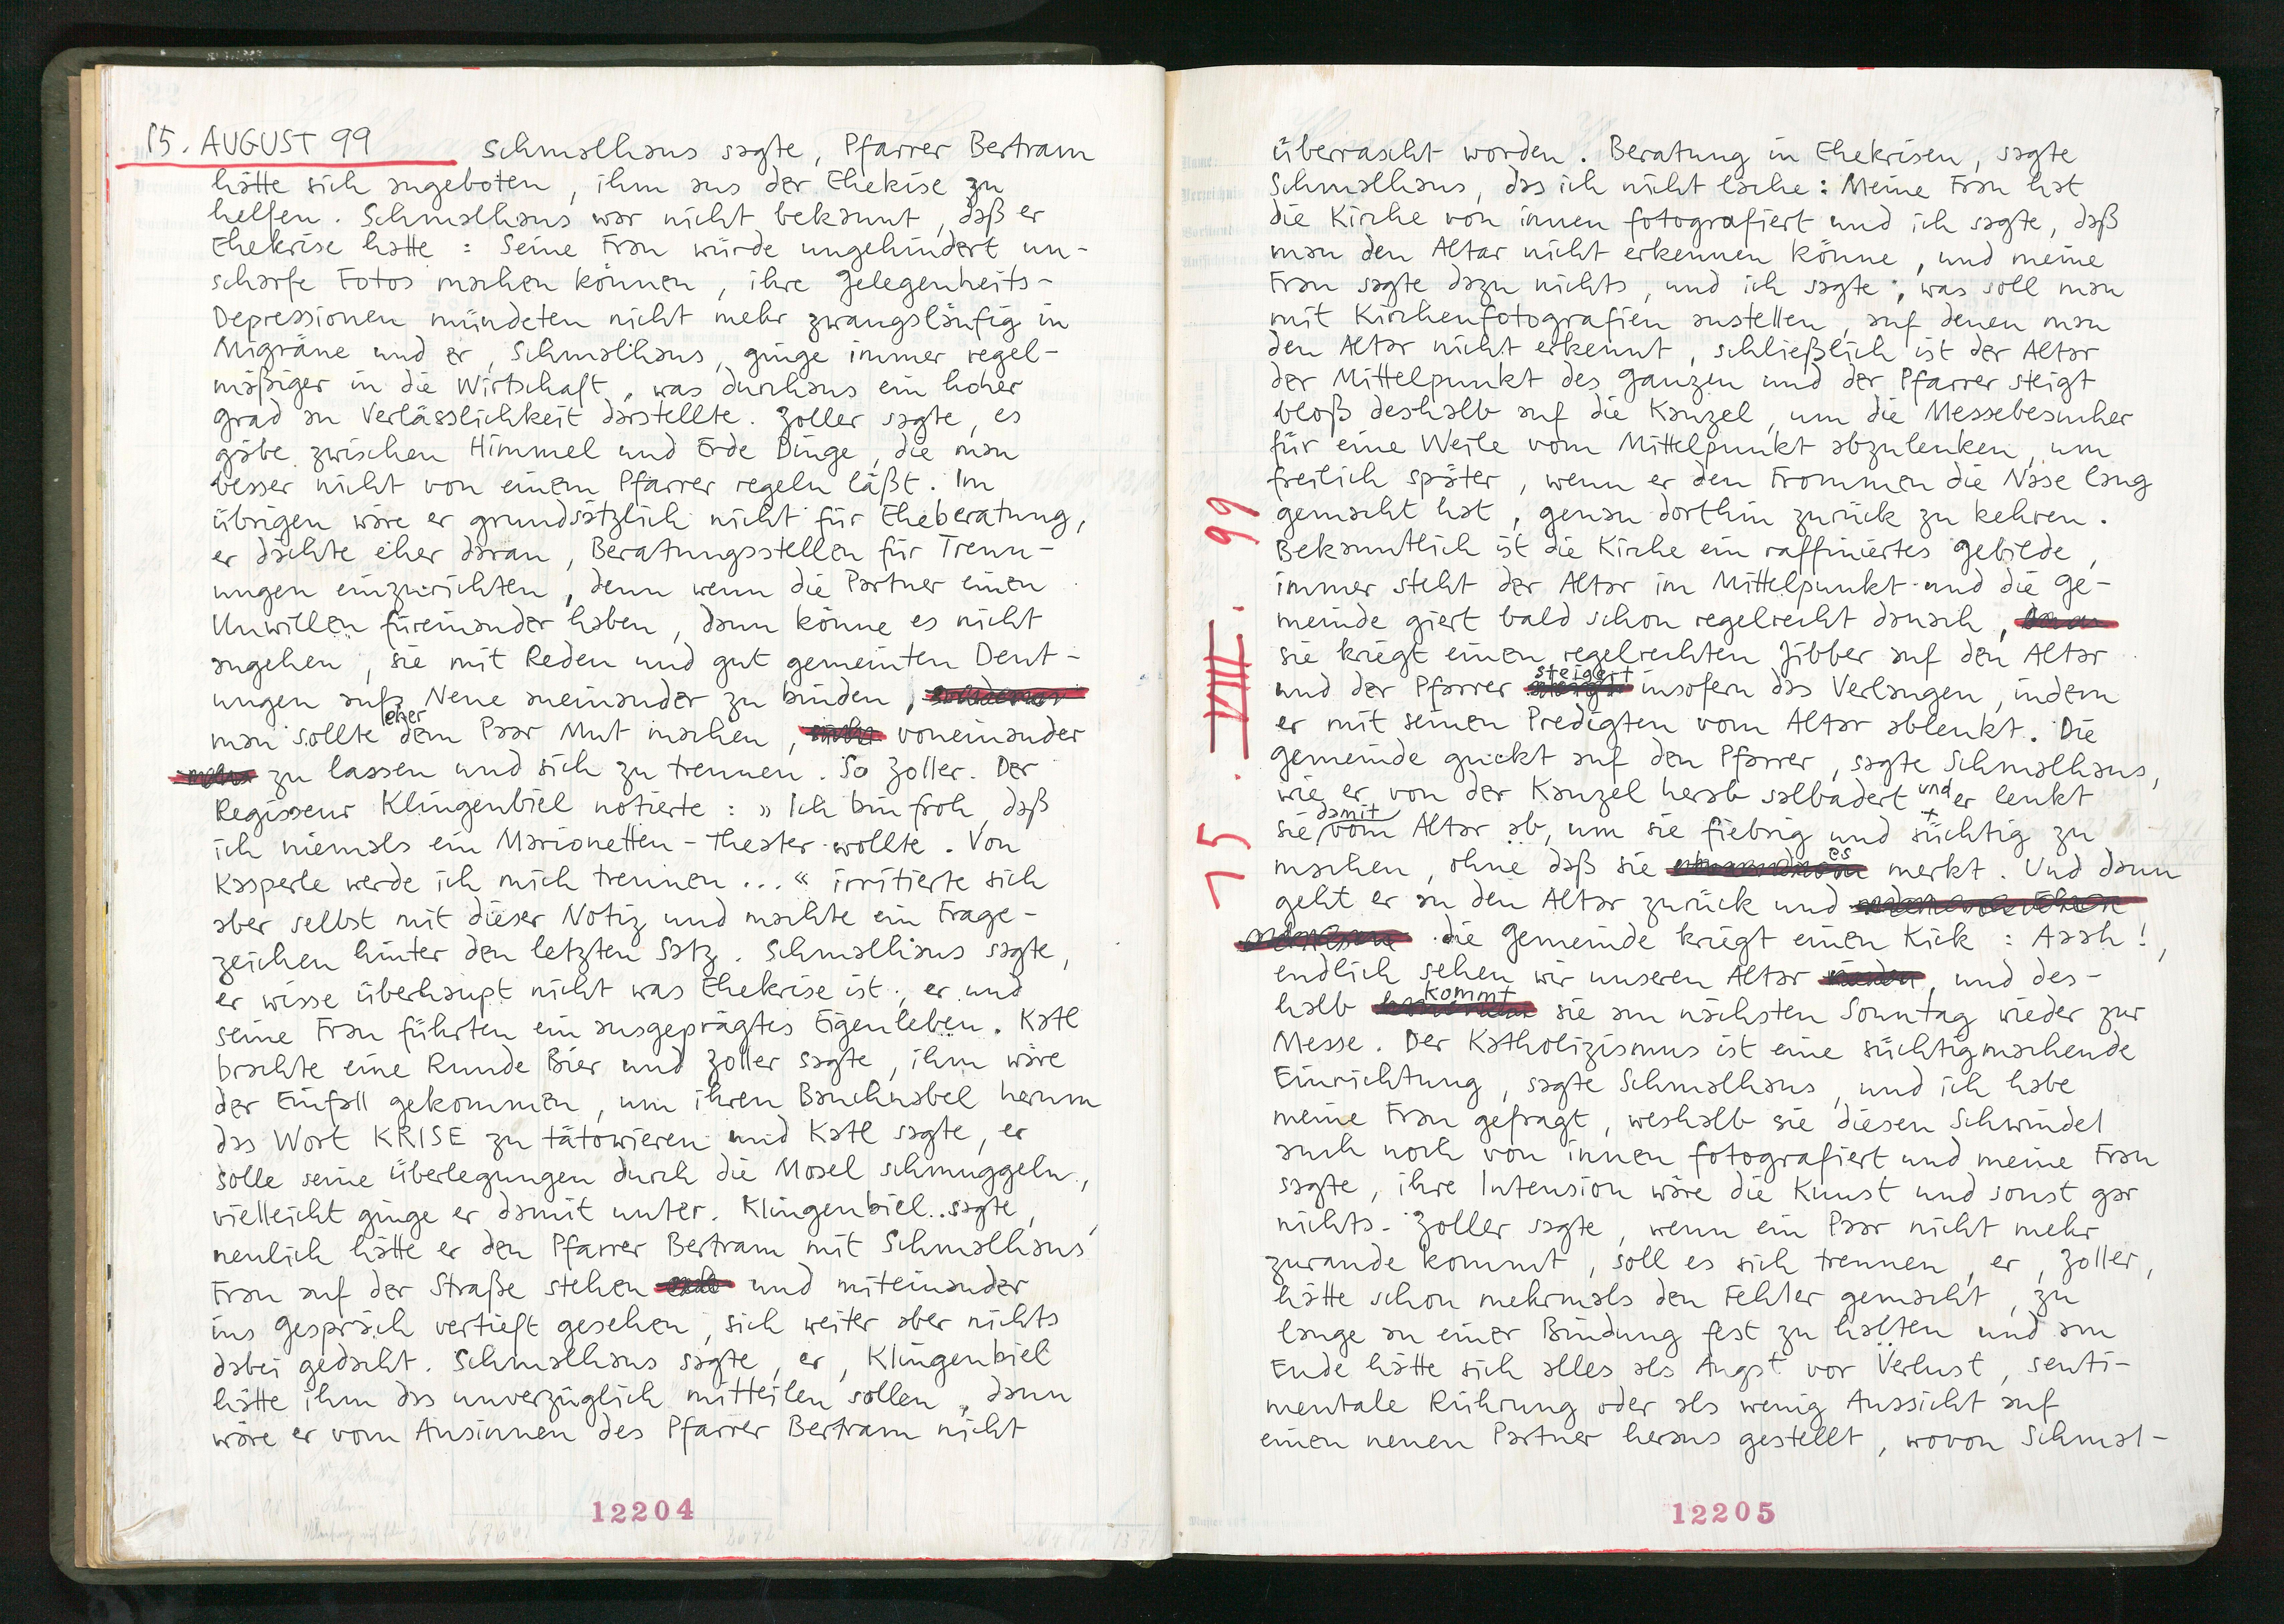 15. AUGUST 99 Schmalhaus sagte, Pfarrer Bertram
hätte sich angeboten, ihm aus der Ehekise zu
helfen. Schmalhaus war nicht bekannt, daß er
Ehekrise hatte: Seine Frau würde ungehindert un-
scharfe Fotos machen können, ihre Gelegenheits-
Depressionen mündeten nicht mehr zwangsläufig in
Migräne und er, Schmalhaus, ginge immer regel-
mäßiger in die Wirtschaft, was durchaus ein hoher
Grad an Verlässlichkeit darstellte. Zoller sagte, es
gäbe zwischen Himmel und Erde Dinge, die man
besser nicht von einem Pfarrer regeln läßt. Im
übrigen wäre er grundsätzlich nicht für Eheberatung,
er dächte eher daran, Beratungsstellen für Trenn-
ungen einzurichten, denn wenn die Partner einen
Unwillen füreinander haben, dann könne es nicht
angehen, sie mit Reden und gut gemeinten Deut-
ungen aufs Neue aneinander zu binden,
man sollte eher dem Paar Mut machen, voneinander
zu lassen und sich zu trennen. So Zoller. Der
Regisseur Klingenbiel notierte: »Ich bin froh, daß
ich niemals ein Marionetten-Theater wollte. Von
Kasperle werde ich mich trennen...« irritierte sich
aber selbst mit dieser Notiz und machte ein Frage-
zeichen hinter den letzten Satz. Schmalhaus sagte,
er wisse überhaupt nicht was Ehekrise ist, er und
seine Frau führten ein ausgeprägtes Eigenleben. Katl
brachte eine Runde Bier und Zoller sagte, ihm wäre
der Einfall gekommen, um ihren Bauchnabel herum
das Wort KRISE zu tätowieren und Katl sagte, er
solle seine Überlegungen durch die Mosel schmuggeln,
vielleicht ginge er damit unter. Klingenbiel sagte,
neulich hätte er den Pfarrer Bertram mit Schmalhaus'
Frau auf der Straße stehen und miteinander
ins Gespräch vertieft gesehen, sich weiter aber nichts
dabei gedacht. Schmalhaus sagte, er, Klingenbiel
hätte ihm das unverzüglich mitteilen sollen, dann
wäre er vom Ansinnen des Pfarrer Bertram nicht
12204
überrascht worden. Beratung in Ehekrisen, sagte
Schmalhaus, das ich nicht lache: Meine Frau hat
die Kirche von innen fotografiert und ich sagte, daß
man den Altar nicht erkennen könne, und meine
Frau sagte dazu nichts, und ich sagte, was soll man
mit Kirchenfotografien anstellen, auf denen man
den Altar nicht erkennt, schließlich ist der Altar
der Mittelpunkt des Ganzen und der Pfarrer steigt
bloß deshalb auf die Kanzel, um die Messebesucher
für eine Weile vom Mittelpunkt abzulenken, um
freilich später, wenn er den Frommen die Nase lang
gemacht hat, genau dorthin zurück zu kehren.
Bekanntlich ist die Kirche ein raffiniertes Gebilde,
immer steht der Altar im Mittelpunkt und die Ge-
meinde giert bald schon regelrecht danach,
sie kriegt einen regelrechten Jibber auf den Altar
und der Pfarrer steigert insofern das Verlangen, indem
er mit seinen Predigten vom Altar ablenkt. Die
Gemeinde guckt auf den Pfarrer, sagte Schmalhaus,
wie er von der Kanzel herab salbadert und er lenkt
sie damit vom Altar ab, um sie fiebrig und süchtig zu
machen, ohne daß sie es merkt. Und dann
geht er an den Altar zurück und
die Gemeinde kriegt einen Kick: Aaah!,
endlich sehen wir unseren Altar, und des-
halb kommt sie am nächsten Sonntag wieder zur
Messe. Der Katholizismus ist eine süchtigmachende
Einrichtung, sagte Schmalhaus, und ich habe
meine Frau gefragt, weshalb sie diesen Schwindel
auch noch von innen fotografiert und meine Frau
sagte, ihre Intension wäre die Kunst und sonst gar
nichts. Zoller sagte, wenn ein Paar nicht mehr
zurande kommt, soll es sich trennen, er, Zoller,
hätte schon mehrmals den Fehler gemacht, zu
lange an einer Bindung fest zu halten und am
Ende hätte sich alles als Angst vor Verlust, senti-
mentale Rührung oder als wenig Aussicht auf
einen neuen Partner heraus gestellt, wovon Schmal-
15. VIII. 99
12205